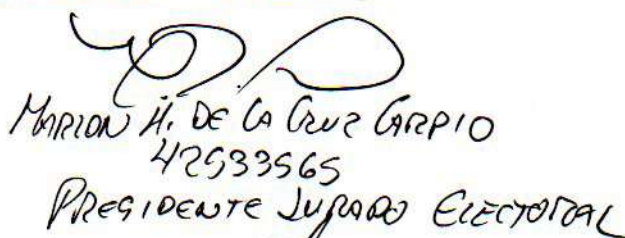 MARION H. DE LA CRUZ CARPIO
42533565
PRESIDENTE JURADO ELECTORAL